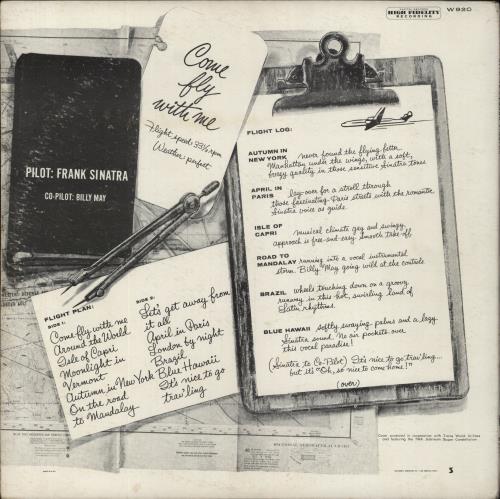 HIGH FIDELITY
RECORDING
W 920
Come
fly
with me
Flight speed: 33⅓ rpm
Weather: perfect
PILOT: FRANK SINATRA
CO-PILOT: BILLY MAY
FLIGHT LOG:
AUTUMN IN NEW YORK never found the flying better.
Manhattan under the wings, with a soft,
breezy quality in those sensitive Sinatra tones
APRIL IN PARIS lay-over for a stroll through
those fascinating Paris streets with the romantic
Sinatra voice as guide.
ISLE OF CAPRI musical climate gay and swingy,
approach is free-and-easy. Smooth take-off
ROAD TO MANDALAY running into a vocal instrumental
storm. Billy May going wild at the controls
BRAZIL wheels touching down on a groovy
runway in this hot, swirling land of
Latin rhythms.
BLUE HAWAII softly swaying palms and a lazy
Sinatra sound. No air pockets over
this vocal paradise!
(Sinatra to Co-Pilot) It's nice to go trav'ling...
but it's "Oh, so nice to come home!"
(over)
FLIGHT PLAN:
SIDE 1:
Come fly with me
Around the World
Isle of Capri
Moonlight in
Vermont
Autumn in New York
On the road
to Mandalay
SIDE 2:
Let's get away from
it all
April in Paris
London by night
Brazil
Blue Hawaii
It's nice to go
trav'ling
Cover produced in cooperation with Trans World Airlines
and featuring the TWA Jetstream Super Constellation
3